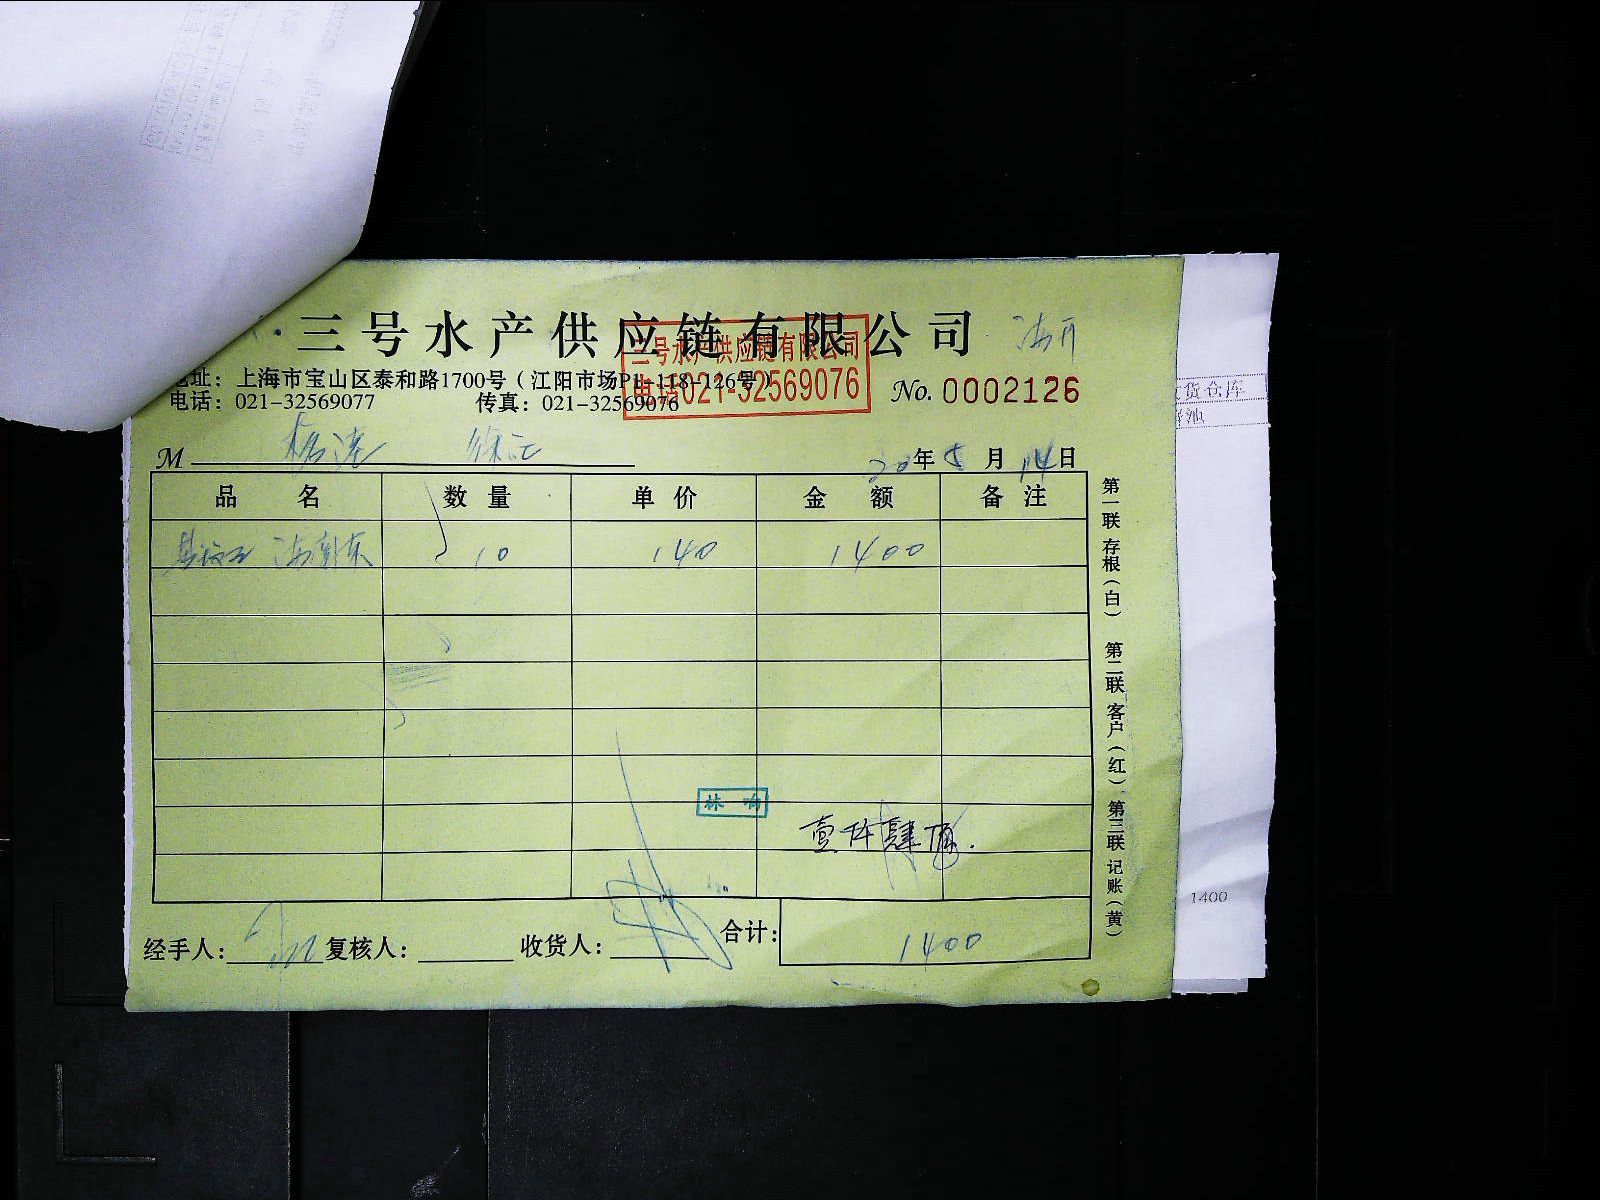 三号水产供应链有限公司
三号水产供应链有限公司
电话021-32569076
地址：上海市宝山区泰和路1700号（江阳市场P1-118-126号）
电话：021-32569077 传真：021-32569076
No. 0002126
M
20年5月14日
品名 数量 单价 金额 备注
10 140 1400
壹仟肆佰.
经手人： 复核人： 收货人： 合计： 1400
第一联 存根（白） 第二联 客户（红） 第三联 记账（黄）
货仓库
1400